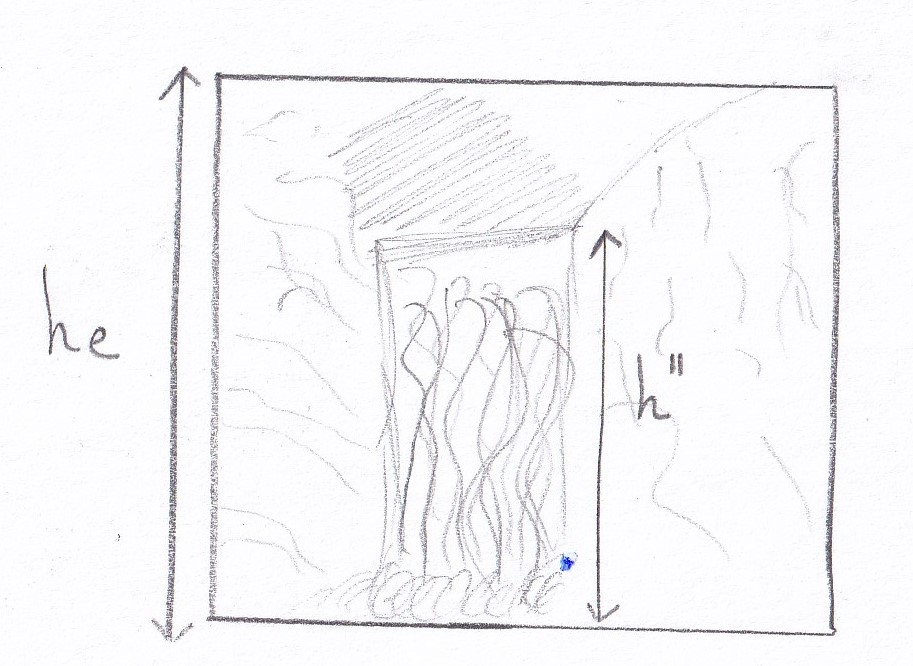 he
h"